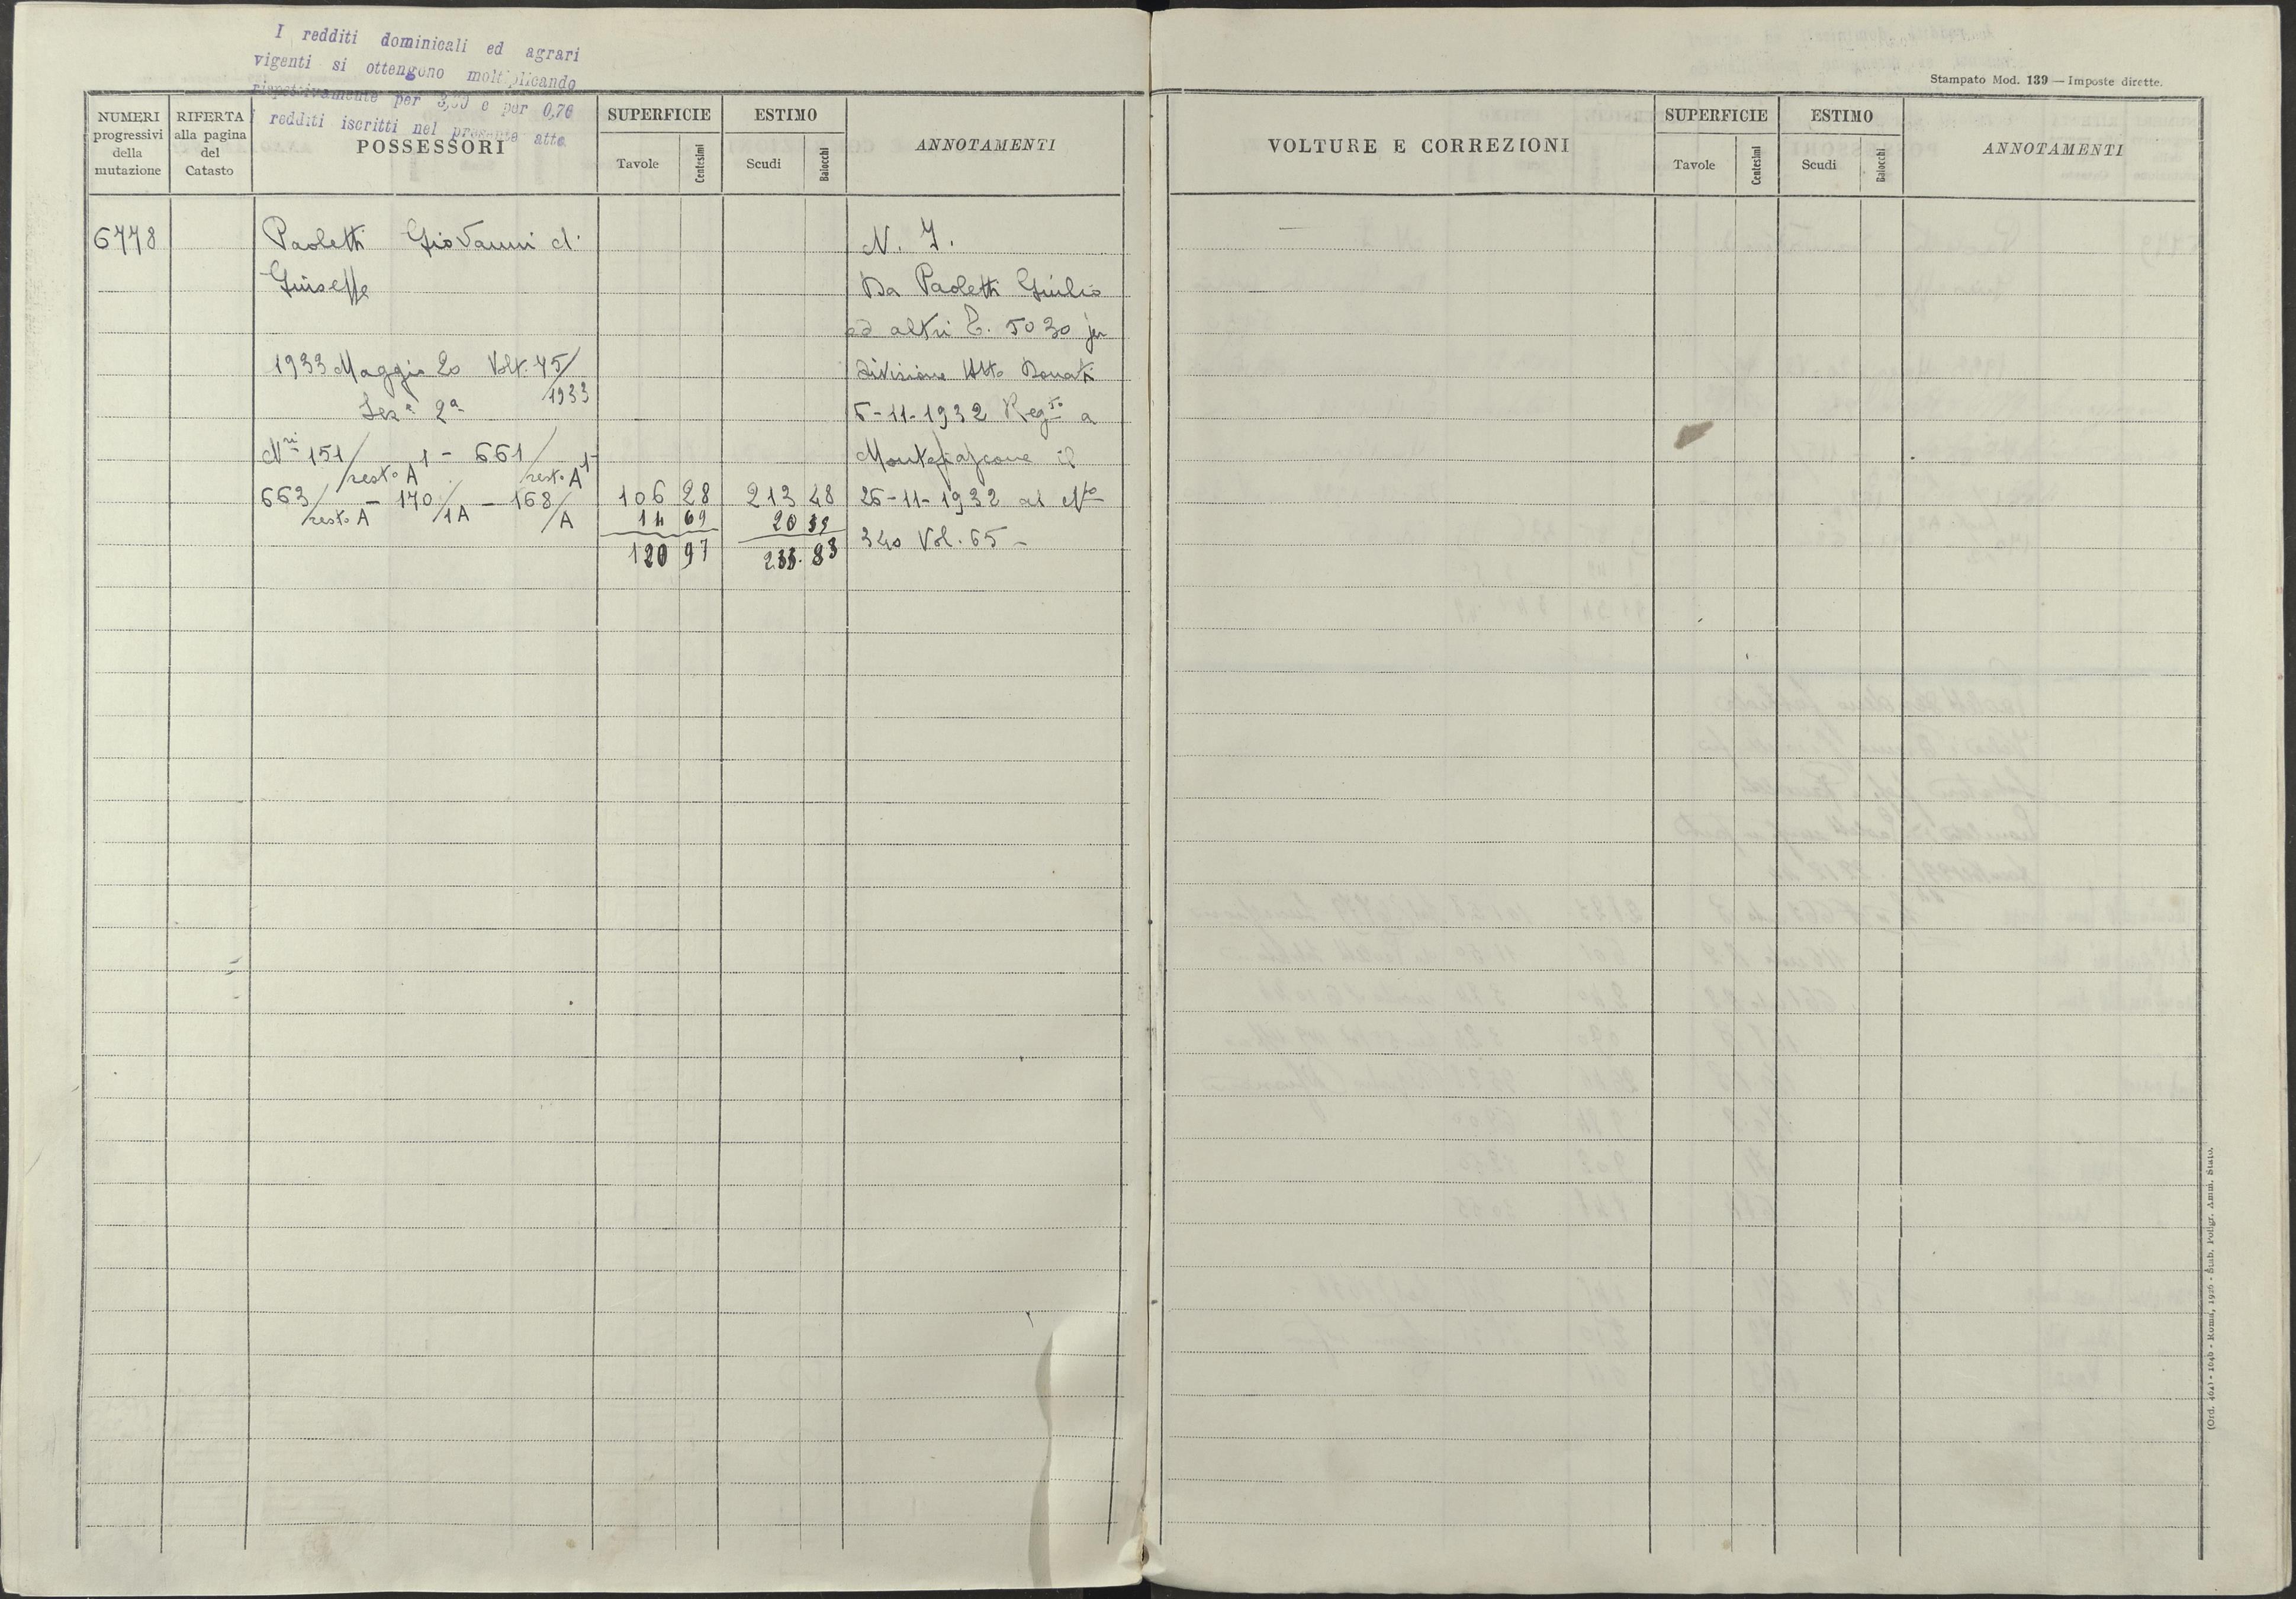 I redditi dominicali ed agrari
vigenti si ottengono moltiplicando
rispettivamente per e per 0,76
i redditi iscritti nel presente atto.
NUMERI progressivi della mutazione
RIFERTA alla pagina del Catasto
POSSESSORI
SUPERFICIE
Tavole Centesimi
ESTIMO
Scudi Baiocchi
ANNOTAMENTI
6778
Paoletti Giovanni di
Guiseppe
1933 Maggio 20 Volt. 45/1933
Sez.e 2a
Nri 151/resto A 1 - 661/resto A 1-
663/resto A - 170/1A - 168/A
106 28 213 48
14 69 20
120 97 233. 83
N. I.
Da Paoletti Giulio
ed altri P. 5030 per
divisione Atto Donati
5-11-1932 Regto a
Montefiascone il
26-11-1932 al No
340 Vol. 65 -
Stampato Mod. 139 — Imposte dirette.
VOLTURE E CORREZIONI
SUPERFICIE
Tavole Centesimi
ESTIMO
Scudi Baiocchi
ANNOTAMENTI
(Ord. 464) - 1046 - Roma, 1926 - Stab. Poligr. Amm. Stato.